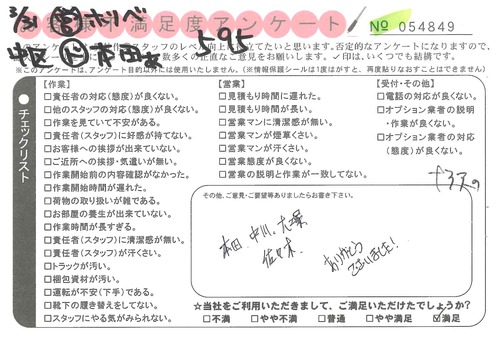 3/31 営 ホリベ
お客様不満足度アンケート
No 054849
中区 市田 様 595
※このアンケートは、アンケート目的以外には使用いたしません。(※情報保護シールは1度はがすと、再度貼りなおすことができません。)
チェックリスト
【作業】
□責任者の対応(態度)が良くない。
□他のスタッフの対応(態度)が良くない。
□作業を見ていて不安がある。
□責任者(スタッフ)に好感が持てない。
□お客様への挨拶が出来ていない。
□ご近所への挨拶・気遣いが無い。
□作業開始前の内容確認がなかった。
□作業開始時間が遅れた。
□荷物の取り扱いが雑である。
□お部屋の養生が出来ていない。
□作業時間が長すぎる。
□責任者(スタッフ)に清潔感が無い。
□責任者(スタッフ)が汗くさい。
□トラックが汚い。
□梱包資材が汚い。
□運転が不安(下手)である。
□靴下の履き替えをしてない。
□スタッフにやる気がみられない。
【営業】
□見積もり時間に遅れた。
□見積もり時間が長い。
□営業マンに清潔感が無い。
□営業マンが煙草くさい。
□営業マンが汗くさい。
□営業態度が良くない。
□営業の説明と作業が一致してない。
【受付・その他】
□電話の対応が良くない。
□オプション業者の説明
・作業が良くない。
□オプション業者の対応
(態度)が良くない。
その他、ご意見・ご要望等ありましたらお書き下さい。
本田、中川、大塚
佐々木
ありがとう
ございました!
☆当社をご利用いただきまして、ご満足いただけたでしょうか?
□不満 □やや不満 □普通 □やや満足 ☑満足